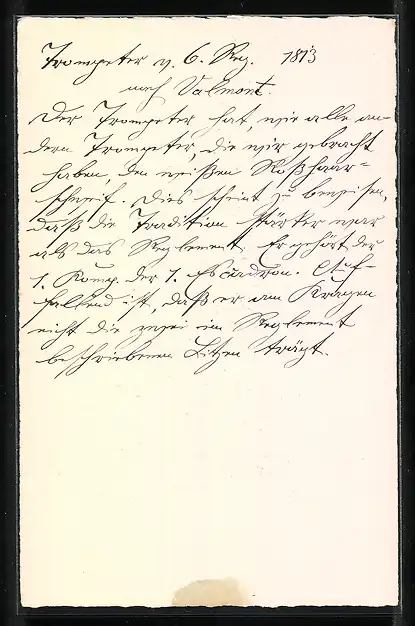 Trompeter v. 6. Reg. 1813
nach Valmont.
Der Trompeter hat, wie alle an-
dern Trompeter, die wir gebracht
haben, den weißen Roßhaar-
schweif. Dies scheint zu beweisen,
daß die Tradition stärker war
als das Reglement. Er gehört der
1. Komp. der 1. Escadron. Auf-
fallend ist, daß er am Kragen
nicht die zwei im Reglement
beschriebenen Litzen trägt.